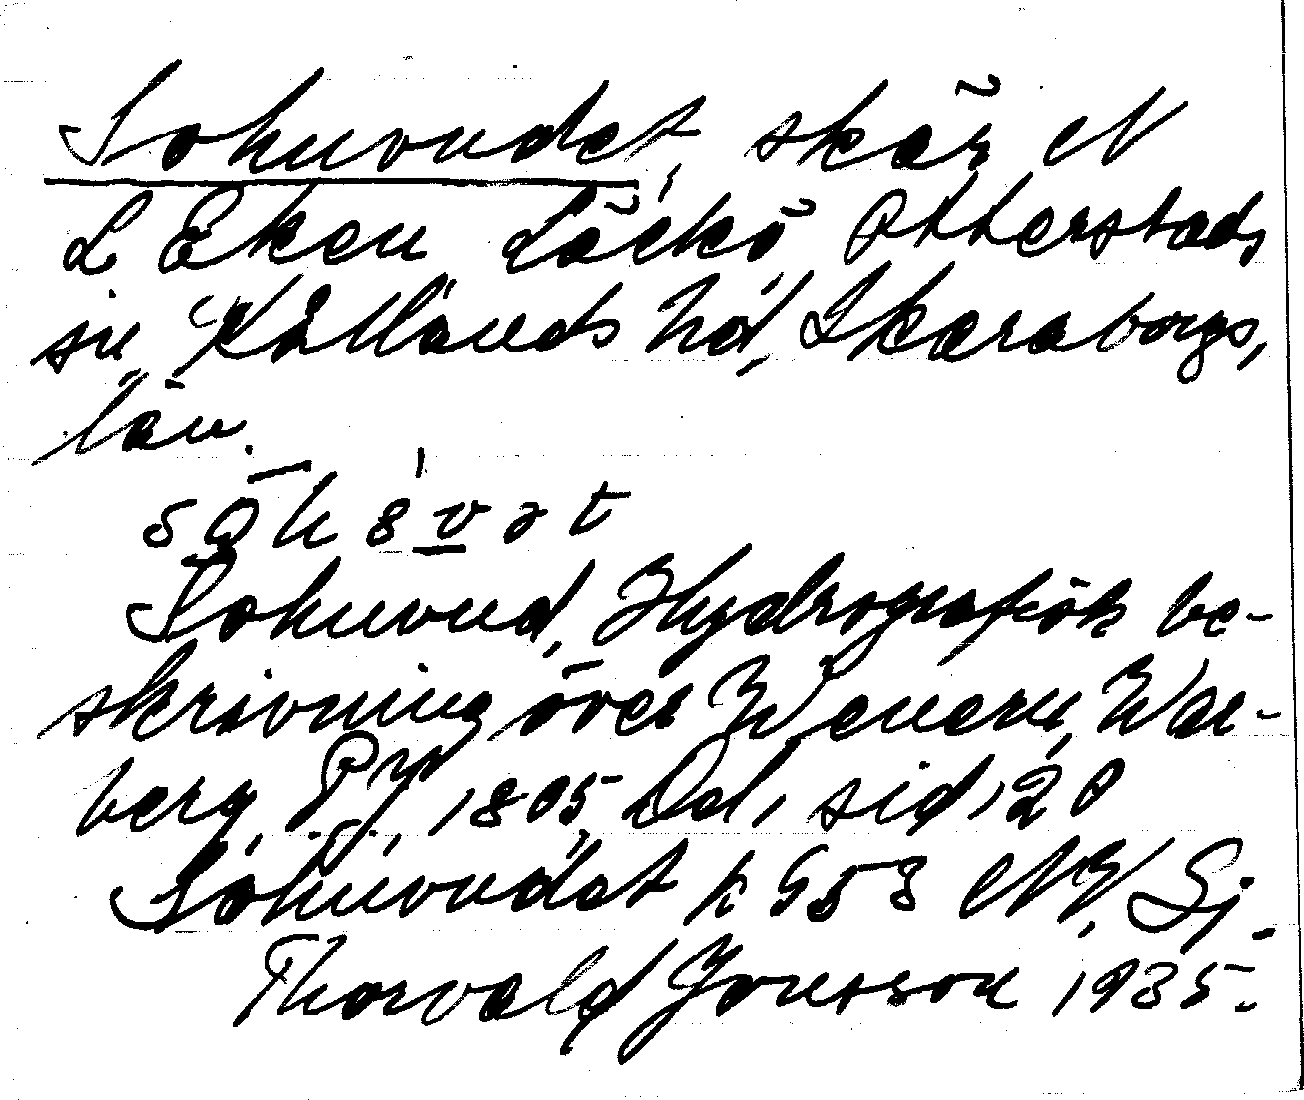 Sohuvudet, skär N
L Eken Läckö Otterstads
sn, Kållands hd, Skaraborgs,
län.
sōh ꞷ̍vət
Sohuvud, Hydrografisk be-
skrivning över Wenern, War-
berg, P.J., 1805, Del, sid, 20
Sohuvudet k 953 NV, Sj.
Thorvald Jonsson 1935.